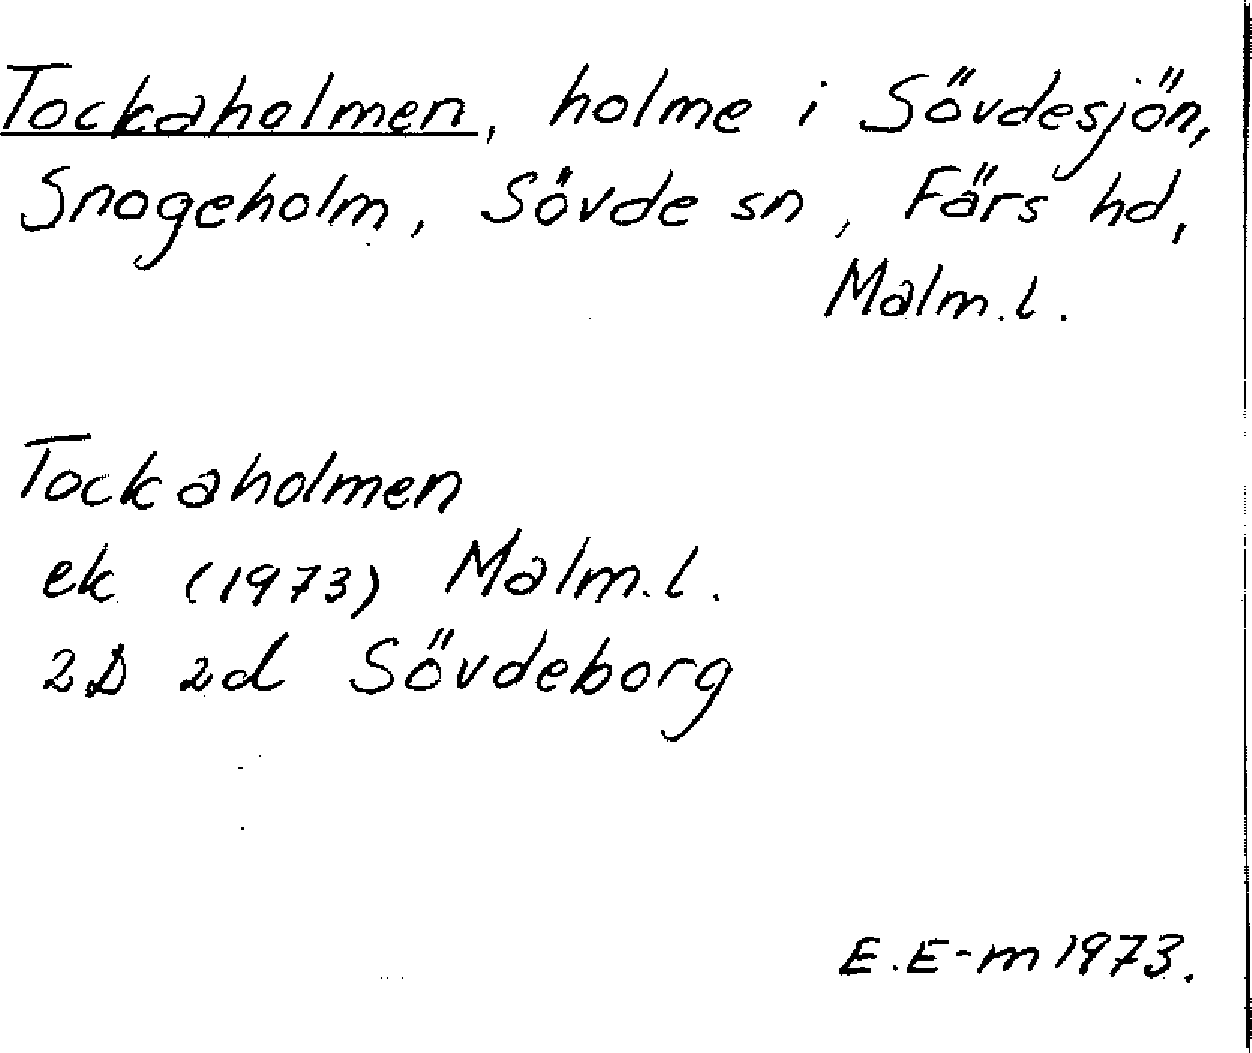 Tockaholmen, holme i Sövdesjön,
Snogeholm, Sövde sn, Färs hd,
Malm.l.
Tockaholmen
ek (1973) Malm.l.
2D 2d Sövdeborg
E.E-m 1973.